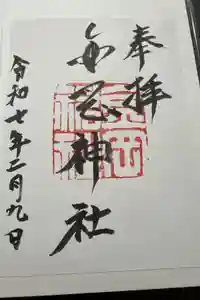 奉拝
神社
令和七年二月九日